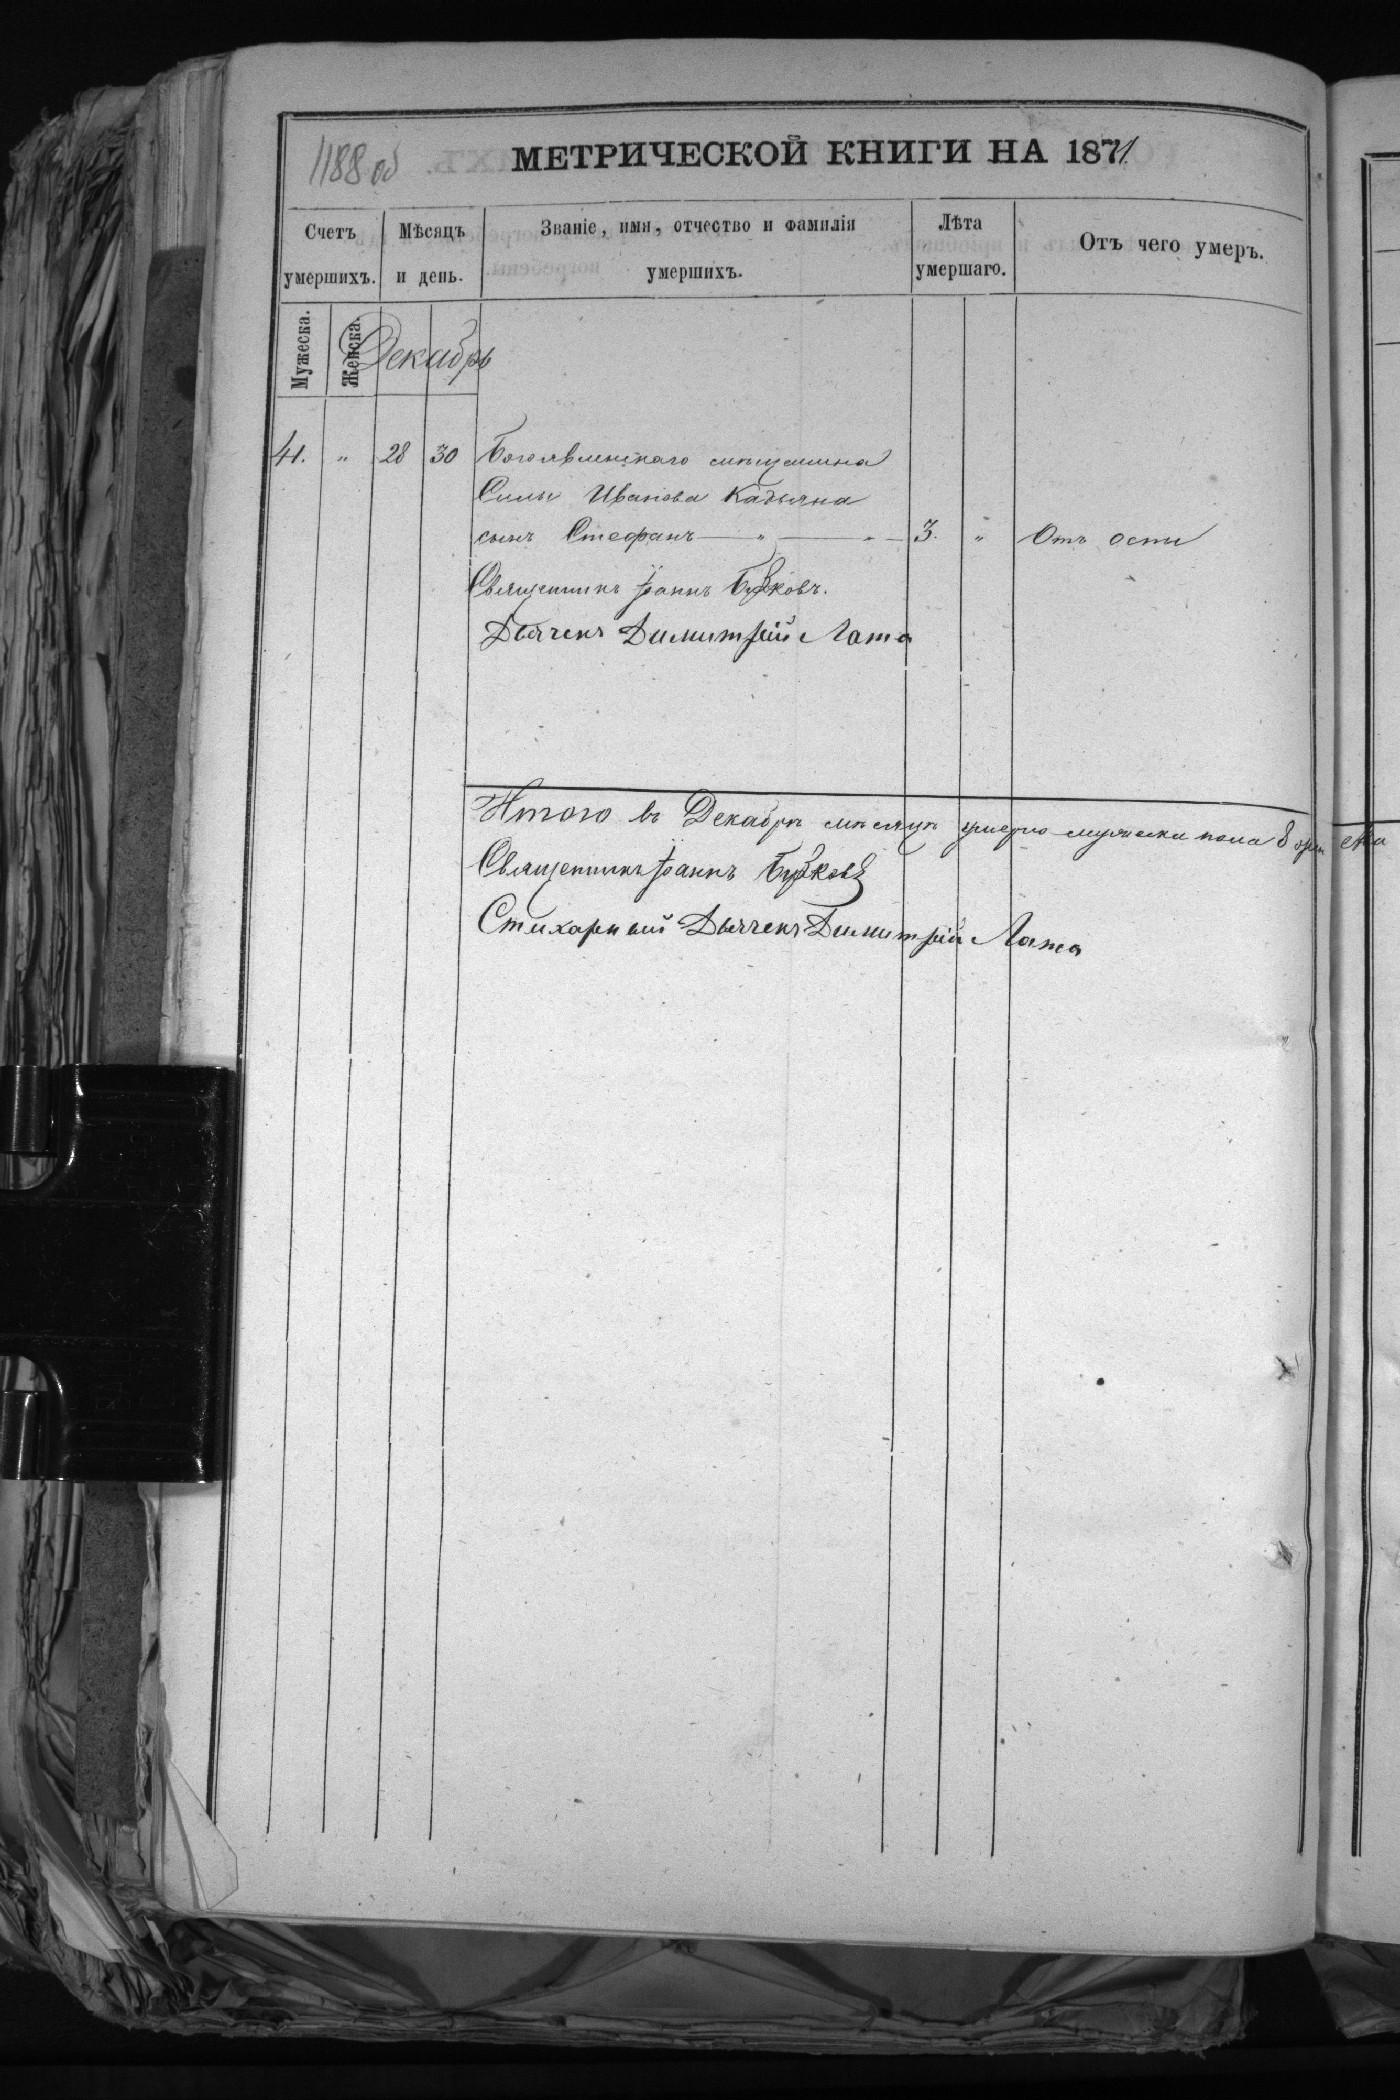 1188 об
МЕТРИЧЕСКОЙ КНИГИ НА 1871
Счетъ умершихъ.
Мѣсяцъ и день.
Званіе, имя, отчество и фамилія умершихъ.
Лѣта умершаго.
Отъ чего умеръ.
Мужеска.
Женска.
Декабрь
41. " 28 30 Богоявленскаго мѣщанина
Силы Иванова Кадьяна
сынъ Стефанъ — " — " — 3. " Отъ оспы
Священникъ Іоаннъ Бужковъ.
Дьячекъ Димитрій Лата
Итого въ Декабрѣ мѣсяцѣ умерло мужеска пола 8
Священникъ Іоаннъ Бужковъ
Стихарный Дьячекъ Димитрій Лата